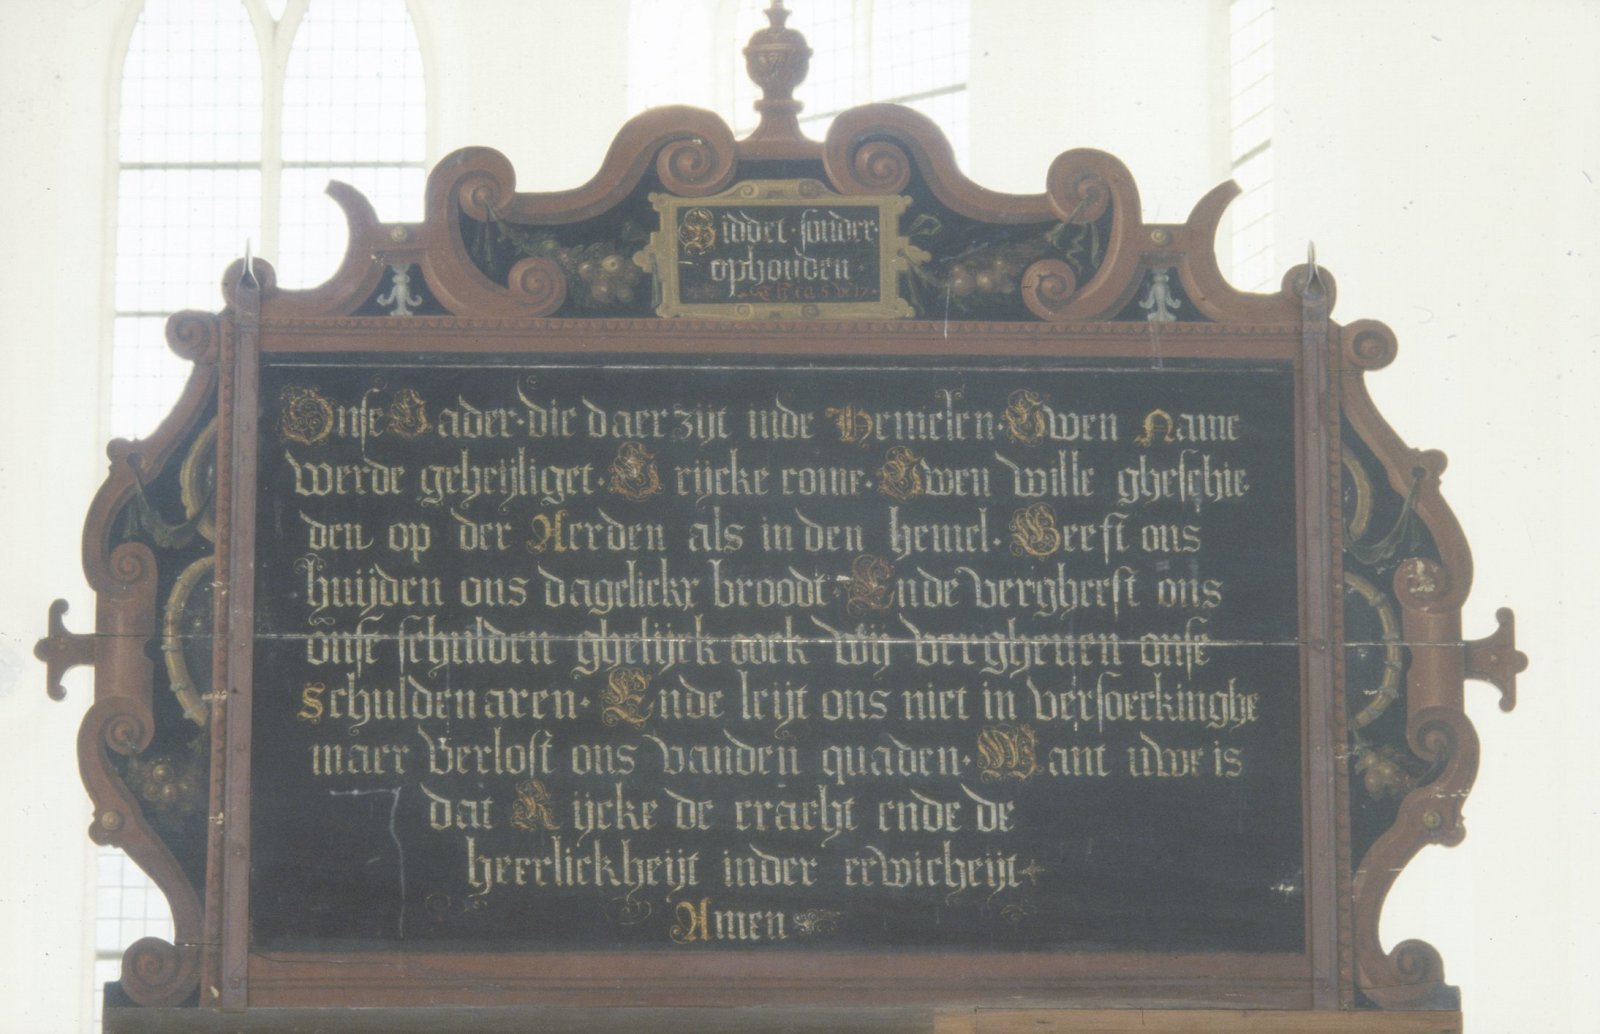 Biddet · sonder
ophouden ·
Onse Vader · die daer zijt inde Hemelen · Uwen Name
werde geheijliget · U rijcke come · Uwen wille gheschie
den op der Aerden als in den hemel · Geeft ons
huijden ons dagelickx broodt · Ende vergheeft ons
onse schulden ghelijck oock wij vergheuen onse
schuldenaren · Ende leijt ons niet in versoeckinghe
maer verlost ons vanden quaden · Want uwe is
dat Rijcke de cracht ende de
heerlickheijt inder eewicheijt
Amen